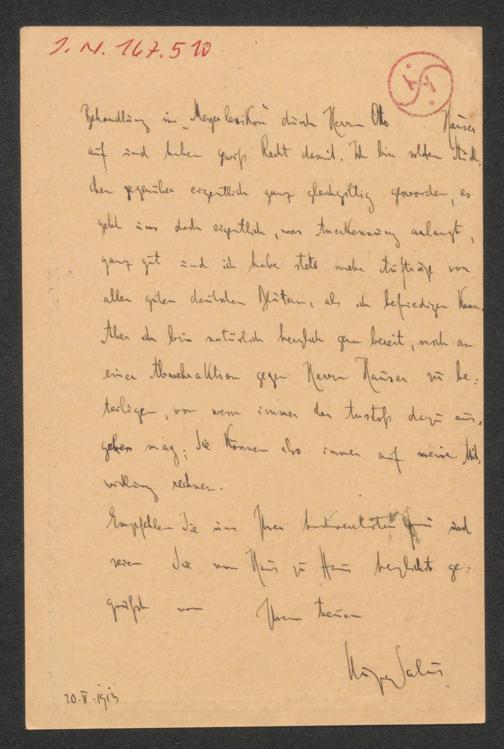 J. N. 167.510
Behandlung im „Meyerlexikon" durch Herrn Otto Hauser
auf und haben gewiß Recht damit. Ich bin solchen Stück-
chen gegenüber eigentlich ganz gleichgiltig geworden, es
geht uns doch eigentlich, was Anerkennung anlangt,
ganz gut und ich habe stets mehr Aufträge von
allen guten deutschen Blättern, als ich befriedigen kann.
Aber ich bin natürlich herzlich gern bereit, mich an
einer Abwehraktion gegen Herrn Hauser zu be-
teiligen, von wem immer der Anstoß dazu aus-
gehen mag; Sie können also immer auf meine Mit-
wirkung rechnen.
Empfehlen Sie uns Ihrer hochverehrten und
seien Sie von Haus zu Haus herzlichst ge-
grüßt von Ihrem treuen
Hugo Salus.
20.V.1913